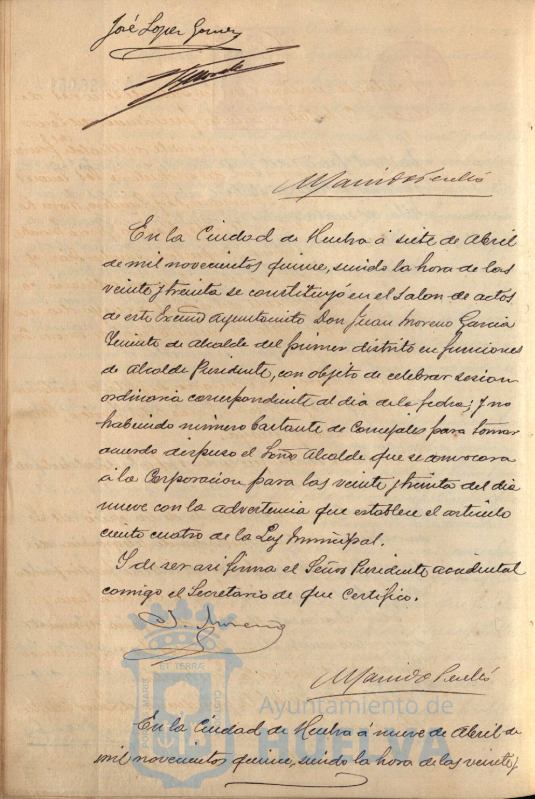 José Lopez Gomez
En la Ciudad de Huelva á siete de Abril
de mil novecientos quince, siendo la hora de las
veinte y treinta se constituyó en el Salon de actos
de este Excmo Ayuntamiento Don Juan Moreno Garcia
Teniente de alcalde del primer distrito en funciones
de Alcalde Presidente, con objeto de celebrar sesion
ordinaria correspondiente al dia de la fecha; y no
habiendo número bastante de Concejales para tomar
acuerdo dispuso el Señor Alcalde que se convocara
á la Corporacion para las veinte y treinta del dia
nueve con la advertencia que establece el artículo
ciento cuatro de la Ley Municipal.
Y de ser asi firma el Señor Presidente accidental
comigo el Secretario de que Certifico.
J. Moreno
ET TERRÆ
PORTUS MARIS
CUSTODIA
Ayuntamiento de
HUELVA
En la Ciudad de Huelva á nueve de Abril de
mil novecientos quince, siendo la hora de las veinte y